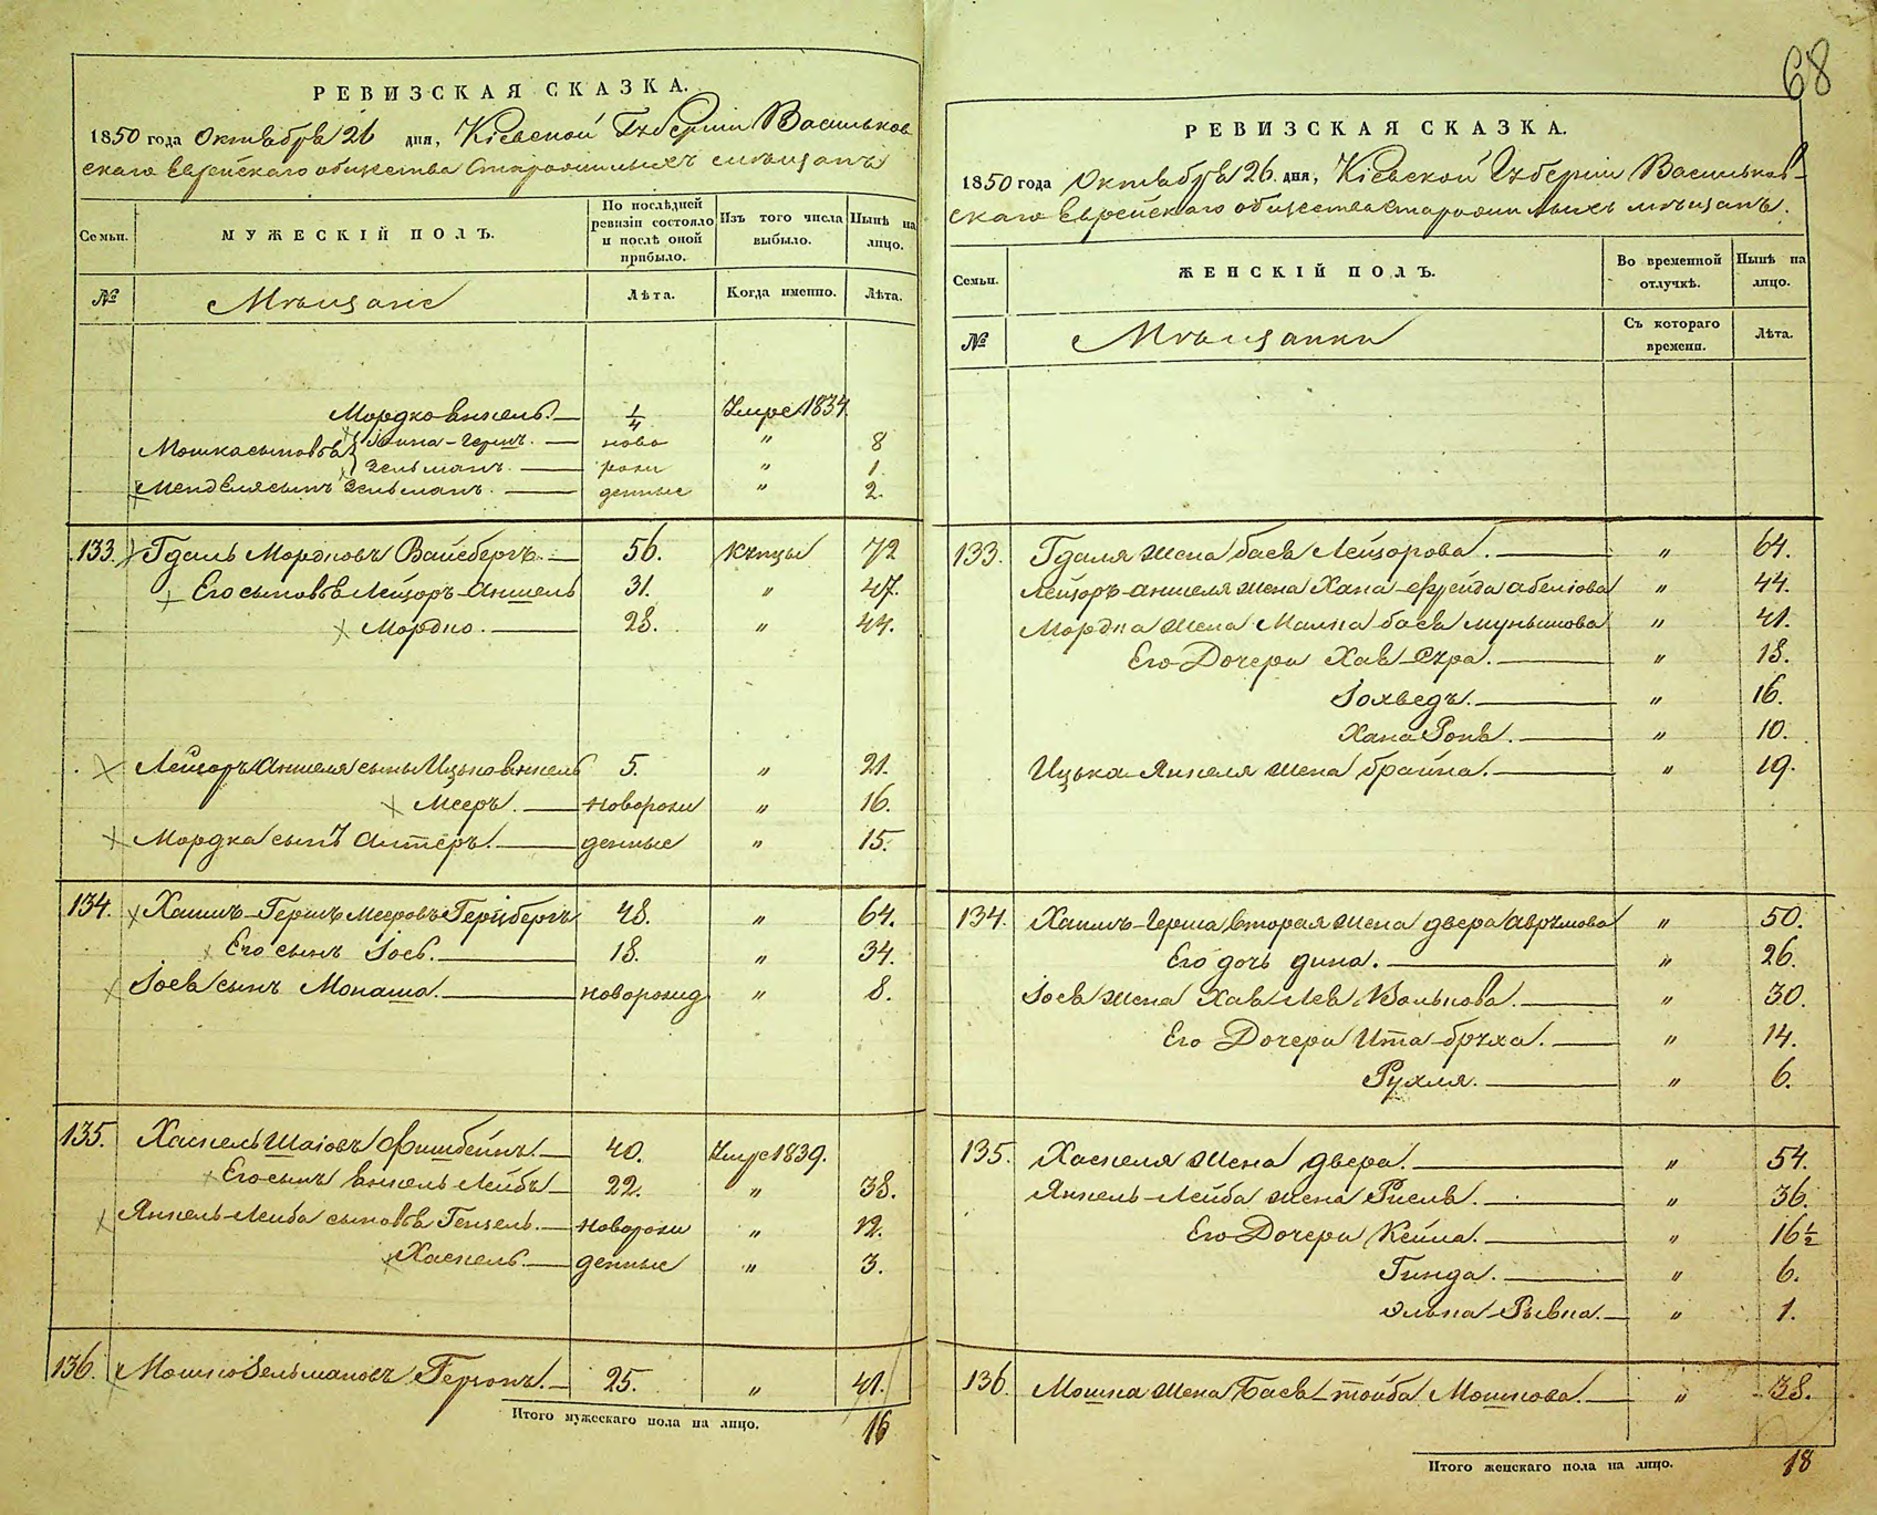 68
РЕВИЗСКАЯ СКАЗКА.
1850 года Октября 26 дня, Кіевской Губерніи Васильков
скаго Еврейскаго общества Старожилыхъ мѣщанъ
Семьи. МУЖЕСКІЙ ПОЛЪ. По послѣдней ревизіи состояло и послѣ оной прибыло. Изъ того числа выбыло. Нынѣ на лицо.
№ Мѣщане Лѣта. Когда именно. Лѣта.
Мордко Янкель. — 1/4 Умре 1834
Мошка сыновья Іосипа-Гершъ. — ново " 8
Зельманъ. — рож " 1.
Менделя сынъ Зельманъ. — денные " 2.
133. Гдаль Мордковъ Вайсбергъ. — 56. Купцы 72
Его сыновья Лейзоръ-Аншель 31. " 47.
Мордко. — 28. " 44.
Лейзоръ Аншеля сыны Ицько Янкель 5. " 21.
Мееръ. — новорож " 16.
Мордка сынъ Алтеръ. — денные " 15.
134. Хаимъ-Гершъ Мееровъ Герцбергъ 48. " 64.
Его сынъ Іось. — 18. " 34.
Іося сынъ Монаша. — новорожд " 8.
135. Хаскель Шаіовъ Фишбейнъ. — 40. Умре 1839.
Его сынъ Янкель Лейбъ — 22. " 38.
Янкель-Лейба сыновья Гензель. — новорож " 12.
Хаскель. — денные " 3.
136. Мошко Зельмановъ Герзонъ. — 25. " 41.
Итого мужескаго пола на лицо. 16
РЕВИЗСКАЯ СКАЗКА.
1850 года Октября 26. дня, Кіевской Губерніи Васильков-
скаго Еврейскаго общества Старожилыхъ мѣщанъ.
Семьи. ЖЕНСКІЙ ПОЛЪ. Во временной отлучкѣ. Нынѣ на лицо.
№ Мѣщанки Съ котораго времени. Лѣта.
133. Гдаля жена Бася Лейзорова. — " 64.
Лейзоръ-Аншеля жена Хана-Фрейда Абеліова " 44.
Мордка жена Малка-Бася Муньшова " 41.
Его Дочери Хая-Сура. — " 18.
Іохведъ. — " 16.
Хана Роня. — " 10.
Ицька-Янкеля жена Брайна. — " 19.
134. Хаимъ-Герша вторая жена Двера Аврумова " 50.
Его дочь Дина. — " 26.
Іося жена Хая Лея Волькова. — " 30.
Его Дочери Ита-Бруха. — " 14.
Рухля. — " 6.
135. Хаскеля жена Двера. — " 54.
Янкель-Лейба жена Рисля. — " 36.
Его Дочери Кейла. — " 16 1/2
Гинда. — " 6.
Элька-Рывка. — " 1.
136. Мошка жена Бася-Тойба Мошкова. — " 38.
Итого женскаго пола на лицо. 18